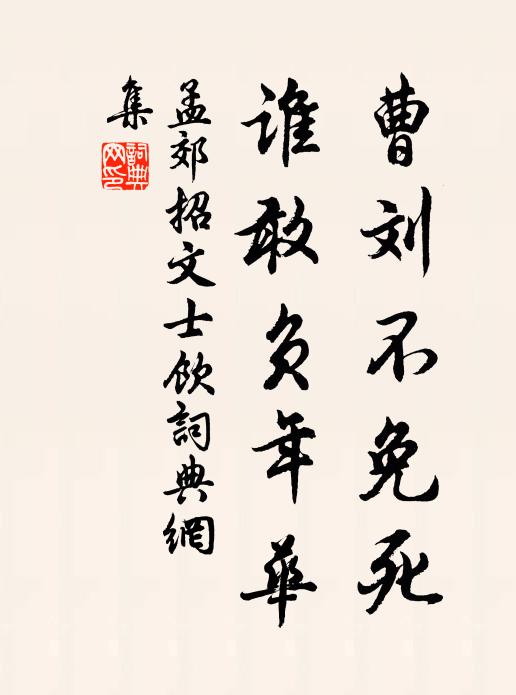 曹刘不免死
谁敢负年华
孟郊招文士饮詞典網
集
詞典
网印